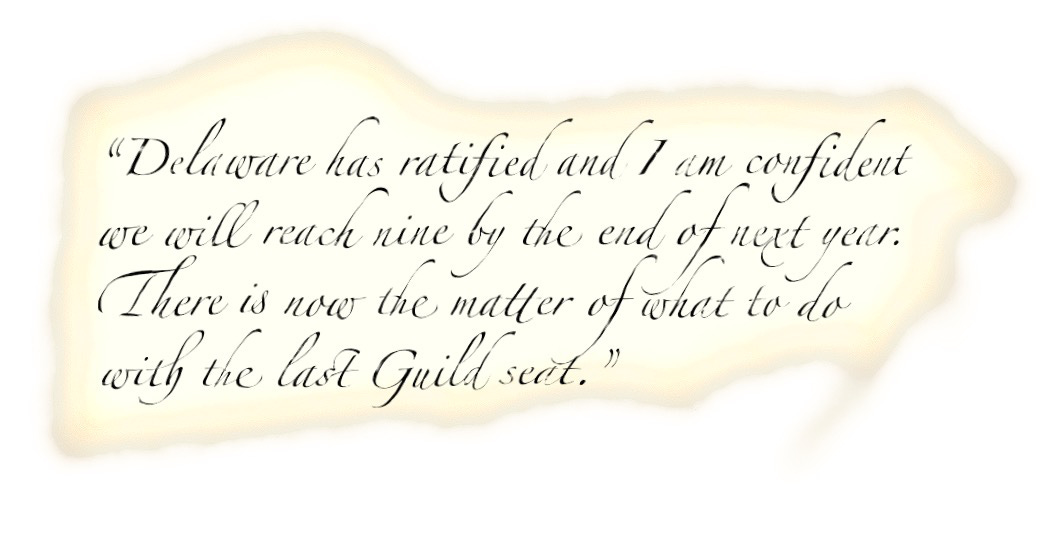 “Delaware has ratified and I am confident
we will reach nine by the end of next year.
There is now the matter of what to do
with the last Guild seat.”